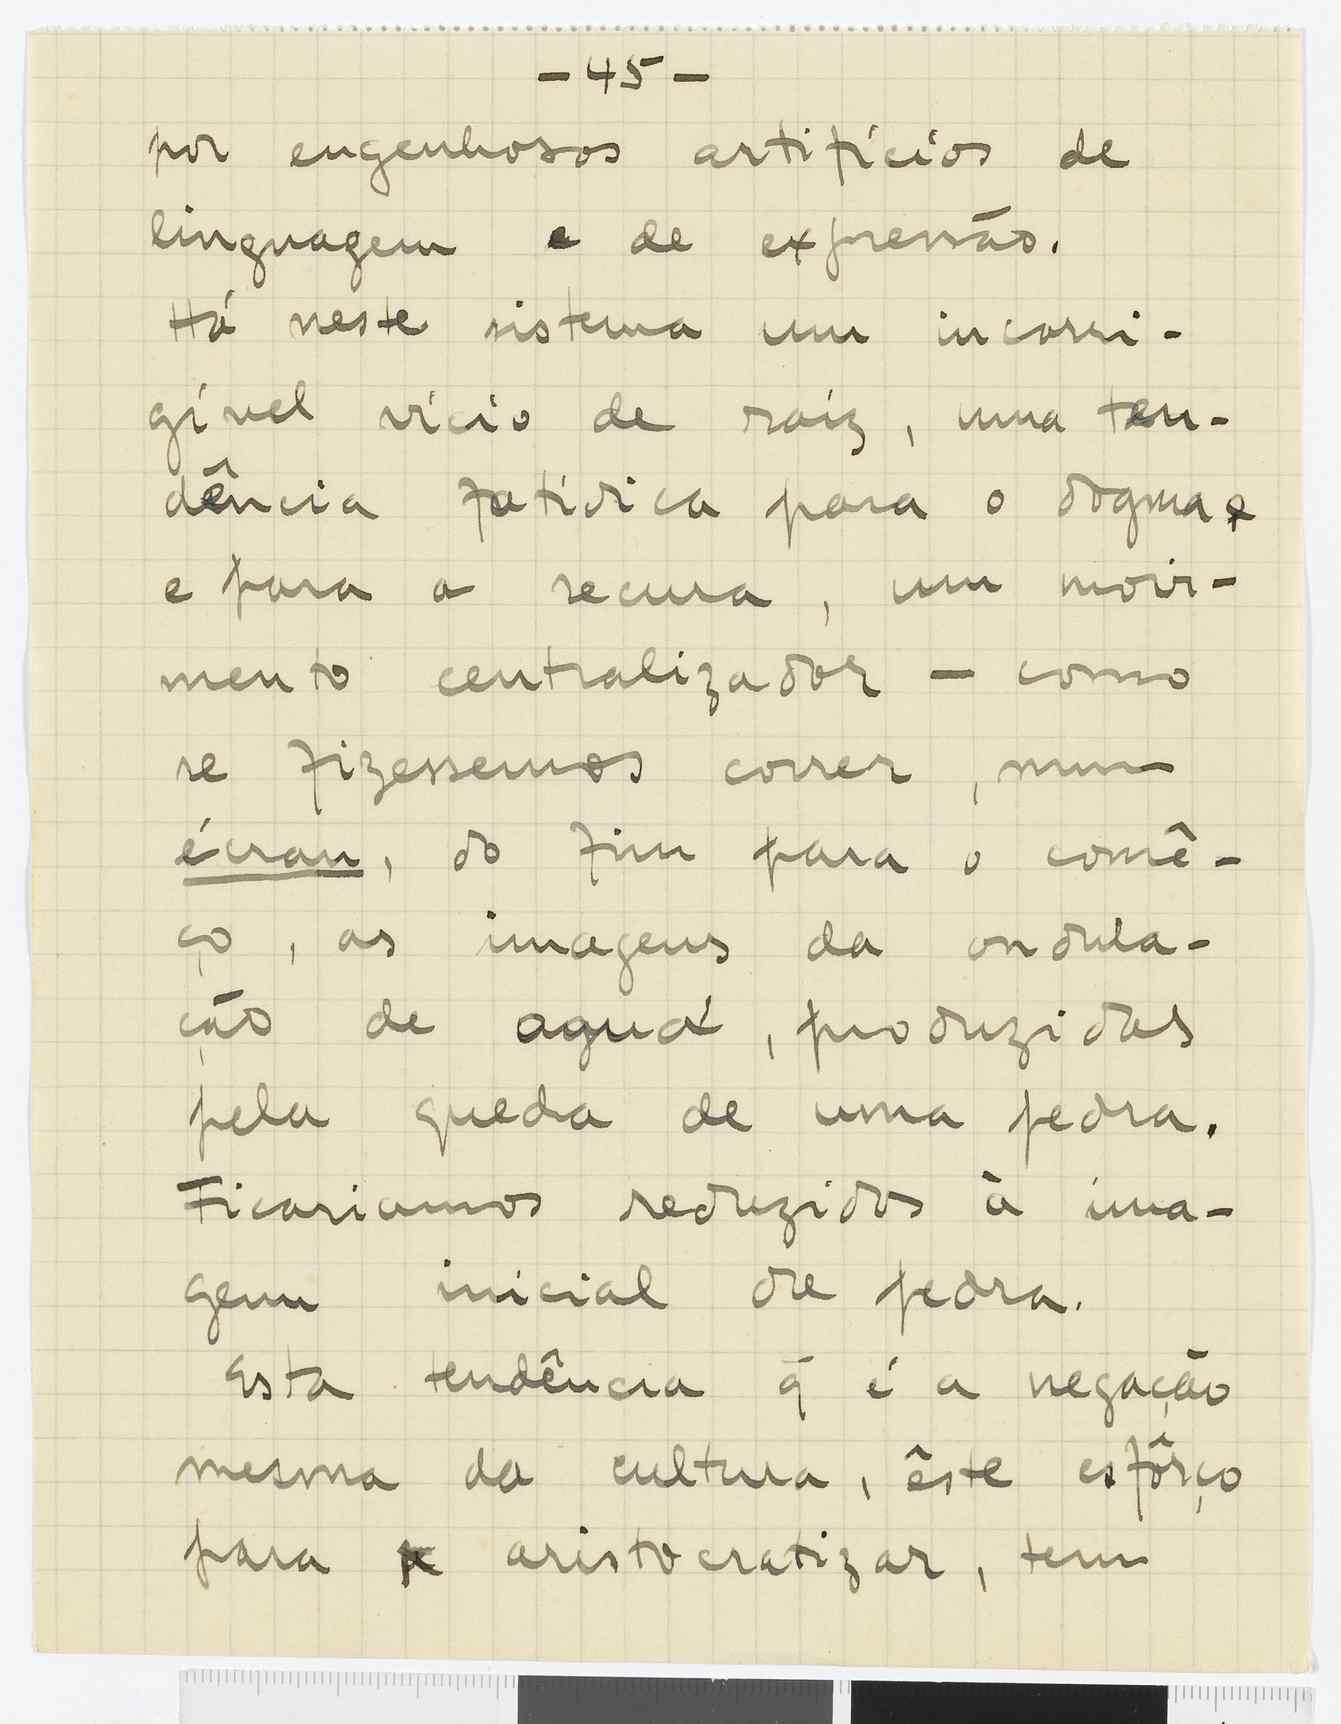 -45-
por engenhosos artifícios de
linguagem e de expressão.
Há neste sistema um incorri-
gível vício de raíz, uma ten-
dência fatídica para o dogma e
e para a secura, um movi-
mento centralizador - como
se fizessemos correr, num
écran, do fim para o comê-
ço, as imagens da ondula-
ção de agua, produzidas
pela queda de uma pedra.
Ficariamos reduzidos à ima-
gem inicial de pedra.
Esta tendência q̃ é a negação
mesma da cultura, êste esfôrço
para aristocratizar, tem